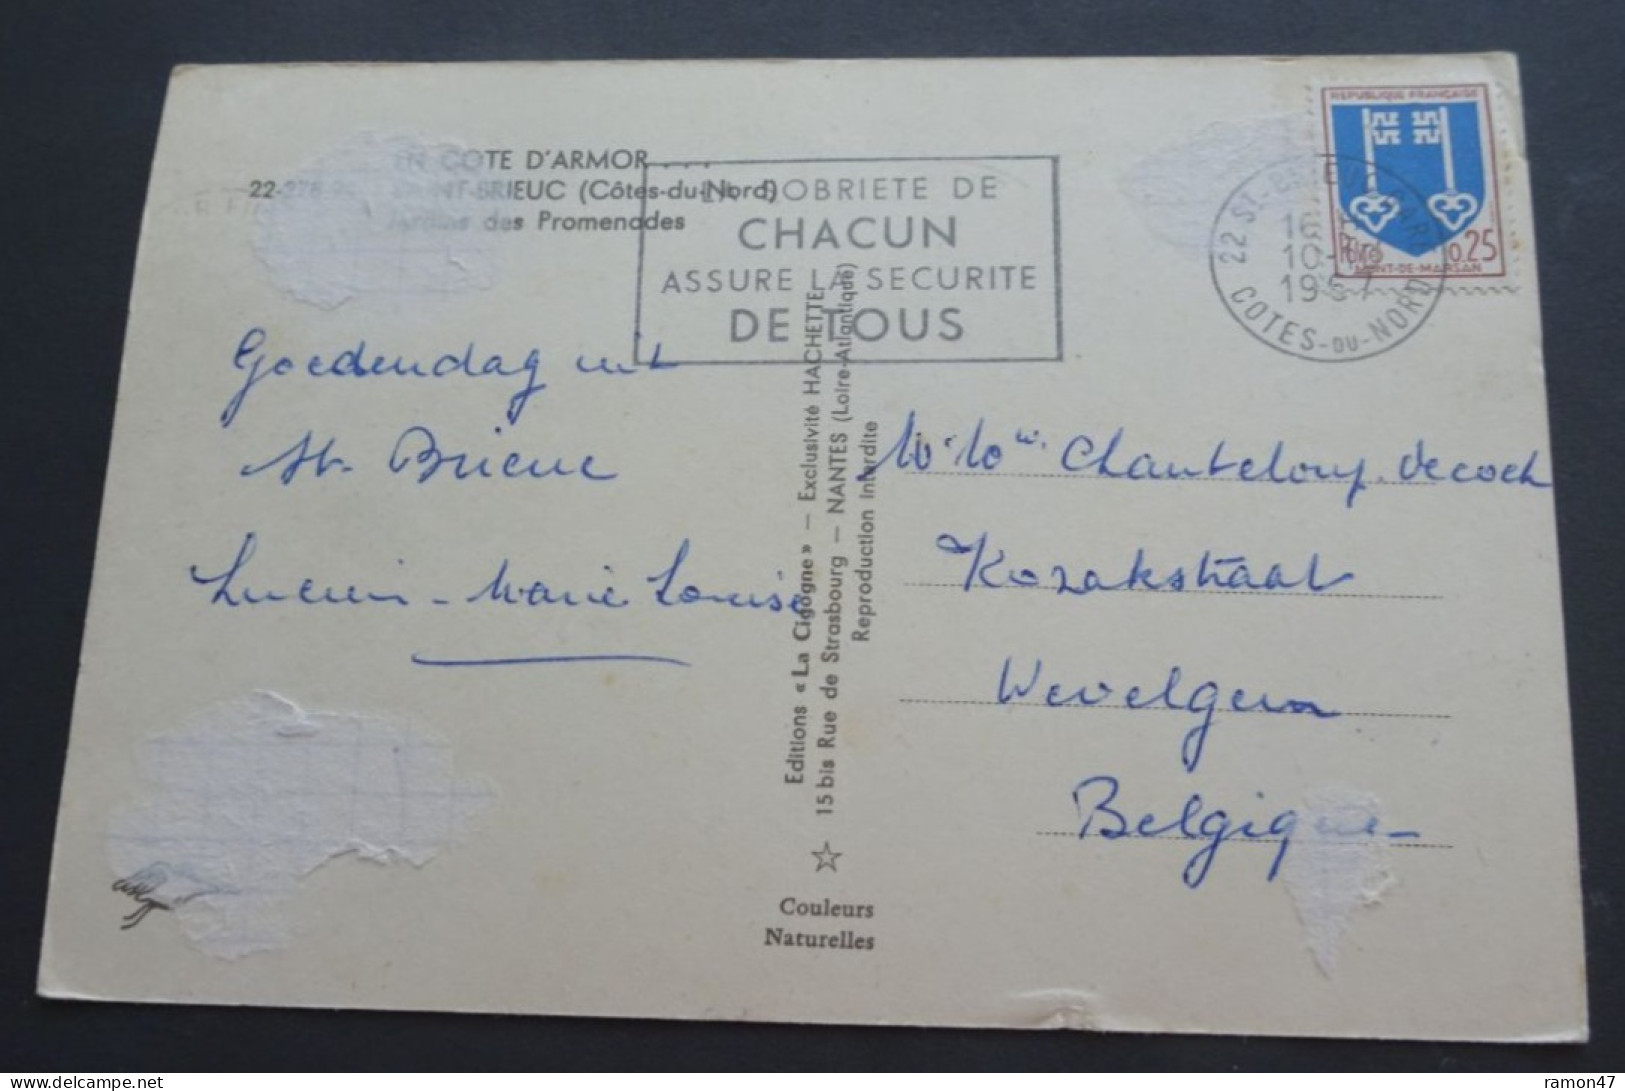 COTE D'ARMOR . . .
SAINT-BRIEUC (Côtes-du-Nord)
Jardins des Promenades
LA SOBRIETE DE
CHACUN
ASSURE LA SECURITE
DE TOUS
REPUBLIQUE FRANÇAISE
0,25
MONT-DE-MARSAN
22 ST-BRIEUC GARE
COTES-DU-NORD
Goedendag uit
St. Brieuc
Lucien - Marie Louise
Editions « La Cigogne » — Exclusivité HACHETTE
15 bis Rue de Strasbourg — NANTES (Loire-Atlantique)
Reproduction Interdite
Couleurs
Naturelles
Chanteloup. Decock
Kozakstraat
Wevelgem
Belgique
delcampe.net
ramon47